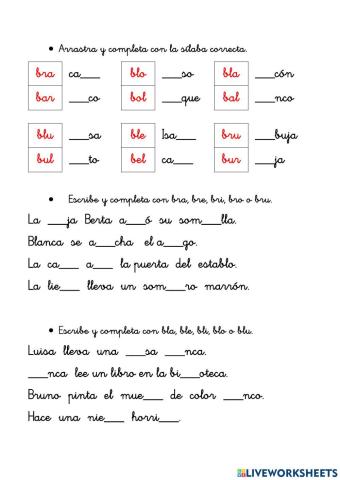 • Arrastra y completa con la sílaba correcta.
bra ca___ blo ___so bla ___cón
bar ___co bol ___que bal ___nco
blu ___sa ble Isa___ bru ___buja
bul ___to bel ca___ bur ___ja
• Escribe y completa con bra, bre, bri, bro o bru.
La ___ja Berta a___ó su som___lla.
Blanca se a___cha el a___go.
La ca___ a___ la puerta del establo.
La lie___ lleva un som___ro marrón.
• Escribe y completa con bla, ble, bli, blo o blu.
Luisa lleva una ___sa ___nca.
___nca lee un libro en la bi___oteca.
Bruno pinta el mue___ de color ___nco.
Hace una nie___ horri___.
LIVEWORKSHEETS